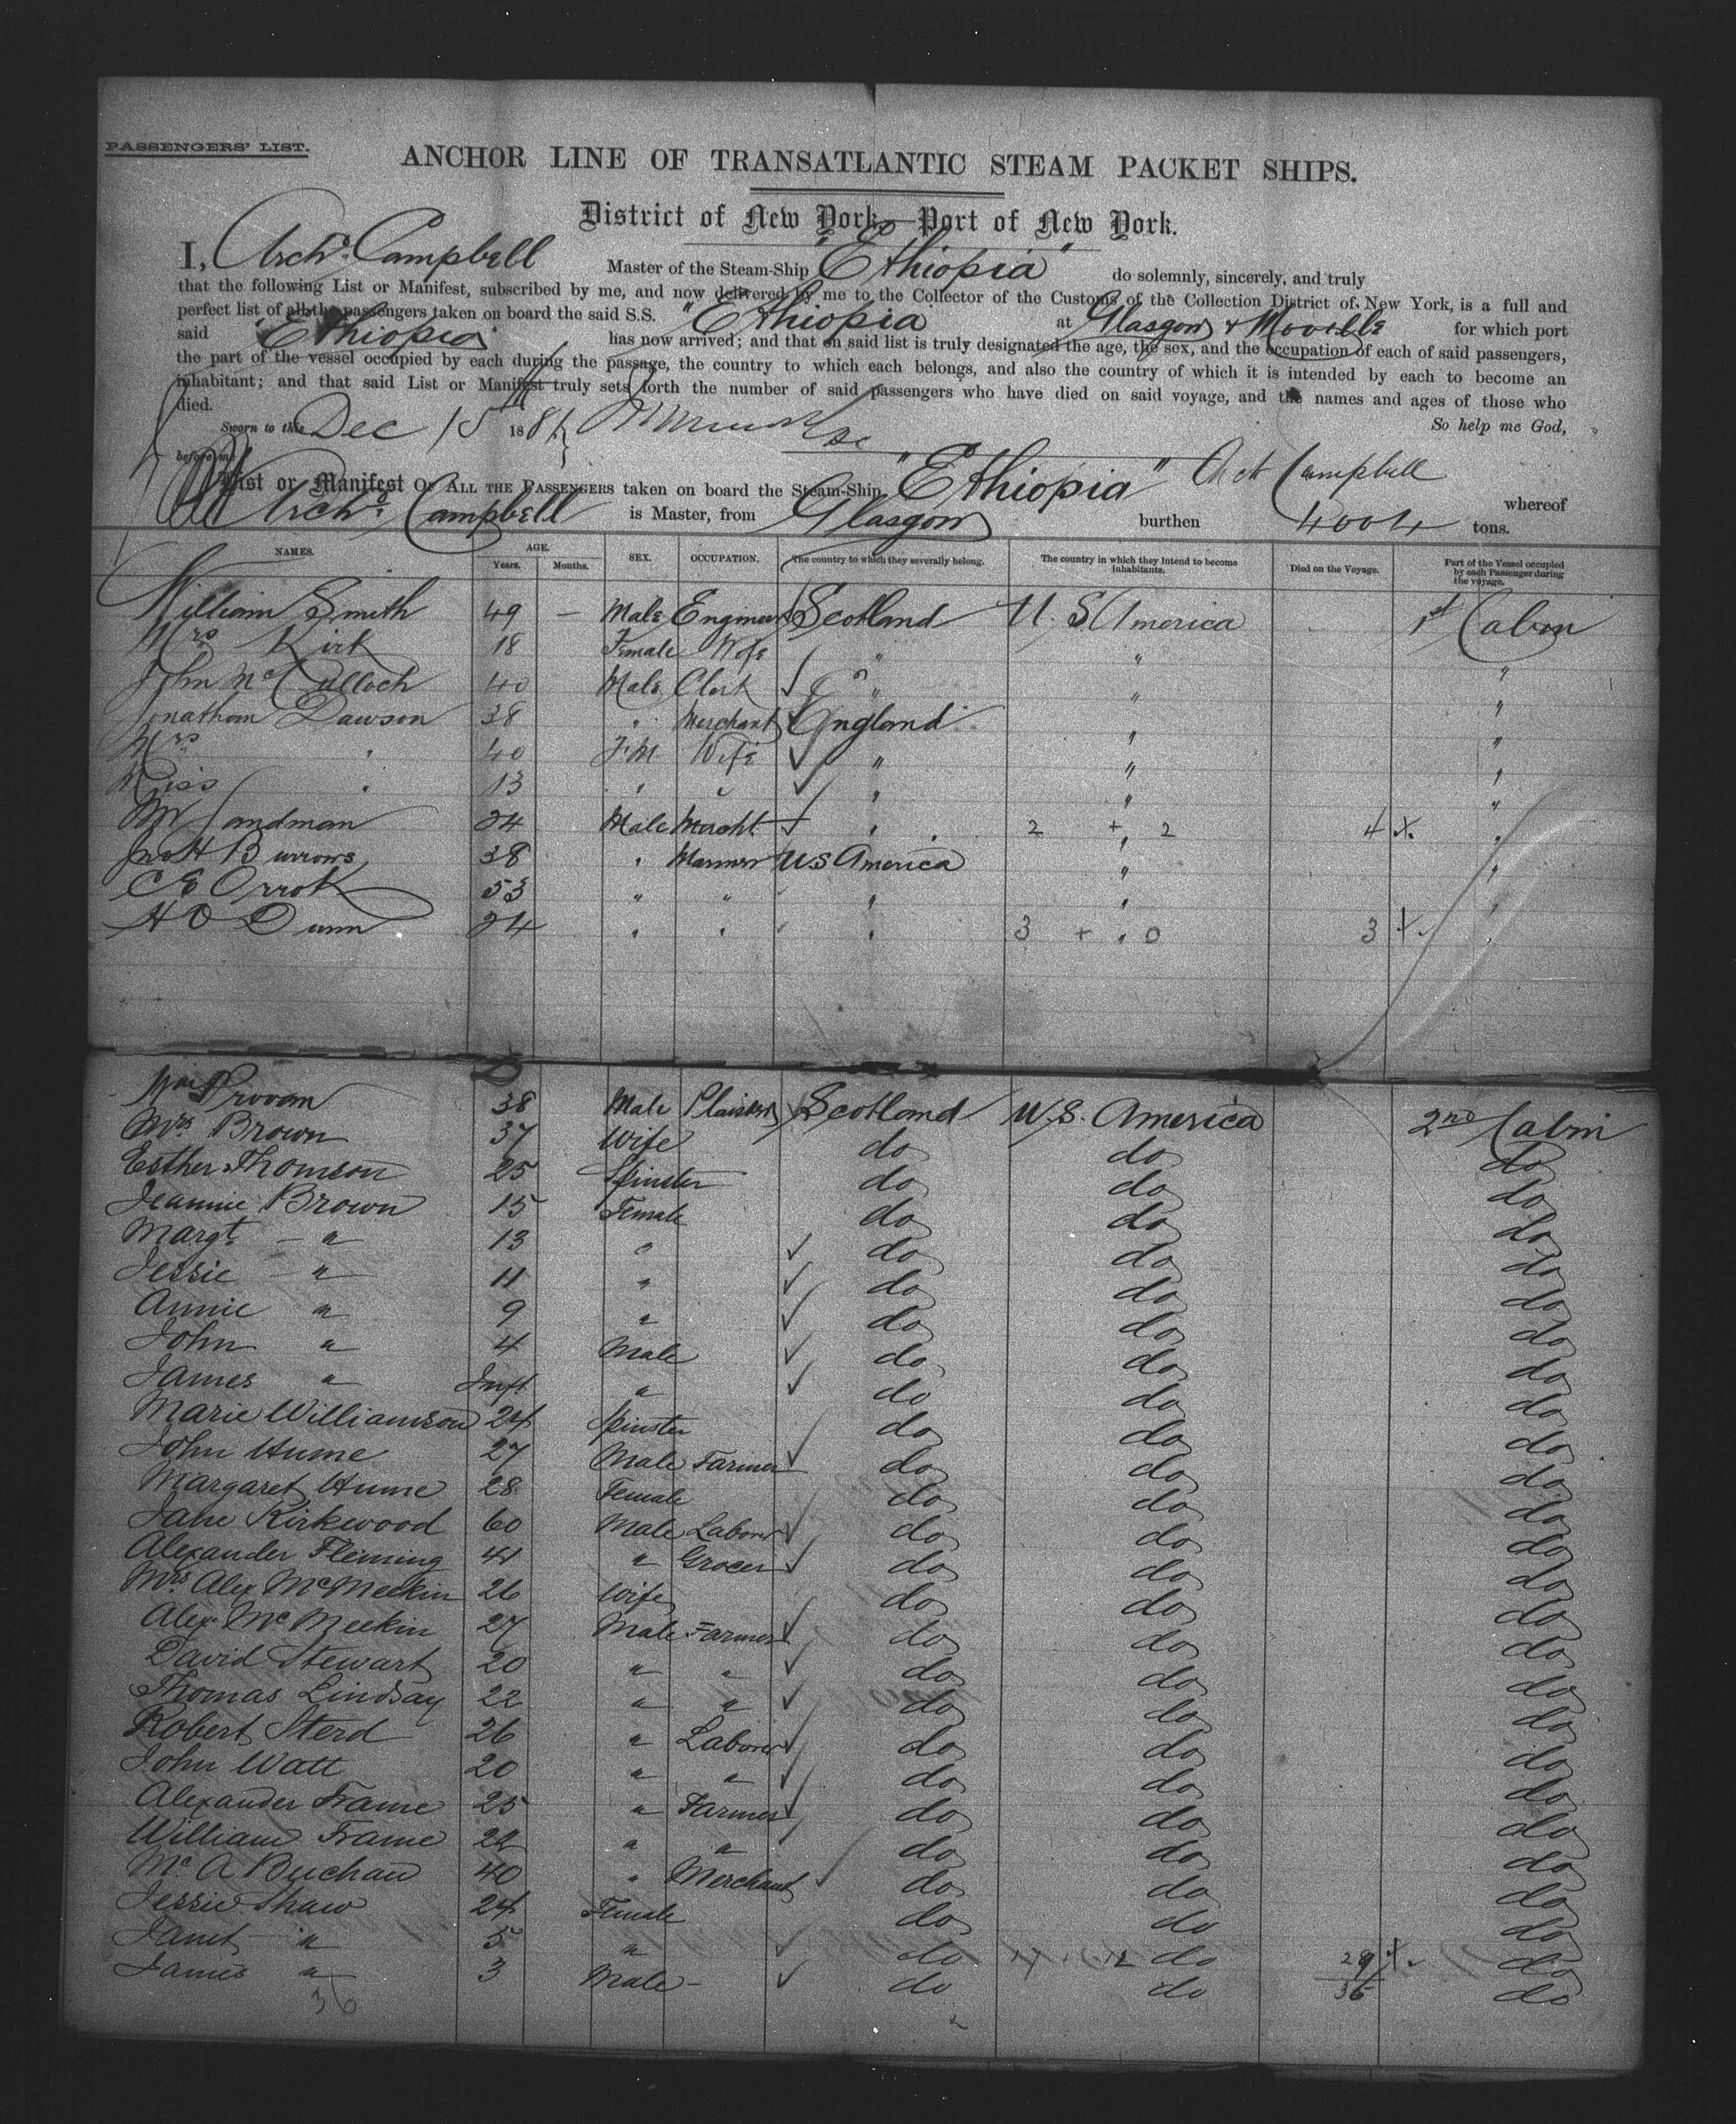 PASSENGERS' LIST.
ANCHOR LINE OF TRANSATLANTIC STEAM PACKET SHIPS.
District of New York—Port of New York.
I, Archd. Campbell Master of the Steam-Ship "Ethiopia" do solemnly, sincerely, and truly
that the following List or Manifest, subscribed by me, and now delivered by me to the Collector of the Customs of the Collection District of New York, is a full and
perfect list of all the passengers taken on board the said S.S. "Ethiopia" at Glasgow & Moville for which port
said "Ethiopia" has now arrived; and that on said list is truly designated the age, the sex, and the occupation of each of said passengers,
the part of the vessel occupied by each during the passage, the country to which each belongs, and also the country of which it is intended by each to become an
inhabitant; and that said List or Manifest truly sets forth the number of said passengers who have died on said voyage, and the names and ages of those who
died.
So help me God,
Sworn to this Dec 15 1881
before me
Arch Campbell
List or Manifest OF ALL THE PASSENGERS taken on board the Steam-Ship "Ethiopia" whereof
Archd. Campbell is Master, from Glasgow burthen 4004 tons.
NAMES. AGE. Years. Months. SEX. OCCUPATION. The country to which they severally belong. The country in which they intend to become inhabitants. Died on the Voyage. Part of the Vessel occupied by each Passenger during the voyage.
William Smith 49 — Male Engineer Scotland U. S. America 1st Cabin
Mrs Kirk 18 Female Wife " " "
John McCulloch 40 Male Clerk " " "
Jonathan Dawson 38 " Merchant England " "
Mrs " 40 F.M Wife " " "
Miss " 13 " " " " "
Mr Sandman 24 Male Mercht " " 2 + 2 4 "
Jno H Burrows 38 " Mariner U.S America " "
C E Orrok 53 " " " " "
H O Dunn 24 " " " 3 + 0 3 "
Wm Provan 38 Male Plaisterer Scotland U.S. America 2nd Cabin
Mrs. Brown 37 Wife do do do
Esther Thomson 25 Spinster do do do
Jeannie Brown 15 Female do do do
Margt. — " 13 " do do do
Jessie — " 11 " do do do
Annie " 9 " do do do
John " 4 Male do do do
James " Inft " do do do
Marie Williamson 24 Spinster do do do
John Hume 27 Male Farmer do do do
Margaret Hume 28 Female do do do
Jane Kirkwood 60 Male Laborer do do do
Alexander Fleming 41 " Grocer do do do
Mrs. Alex McMeekin 26 Wife do do do
Alex McMeekin 27 Male Farmer do do do
David Stewart 20 " " do do do
Thomas Lindsay 22 " " do do do
Robert Sterd 26 " Laborer do do do
John Watt 20 " " do do do
Alexander Frame 25 " Farmer do do do
William Frame 22 " " do do do
Mc A Buchan 40 " Merchant do do do
Jessie Shaw 24 Female do do do
Janet " 5 " do 17 12 do 29 do
James " 3 Male do do 36 do
36